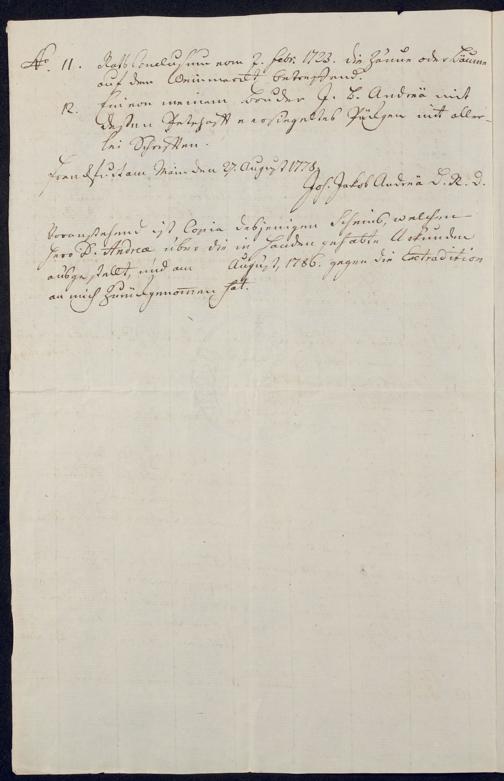 No. 11. Raths Conclusum vom 7. Febr. 1723. die Zäune oder Bäume
auf dem Weinmarckt betreffend.
12. Ein von meinem Bruder J. B. Andreä mit
dessen Petschafft versiegeltes Päckgen mit aller-
lei Schrifften.
Franckfurt am Main den 27. August 1778.
Joh. Jakob Andreä D. R. D.
Voranstehend ist Copia desjenigen Scheins, welchen
Herr D. Andreä über die in Handen gehabte Urkunden
ausgestellt, und am August, 1786. gegen die Extradition
an mich zurückgenommen hat.